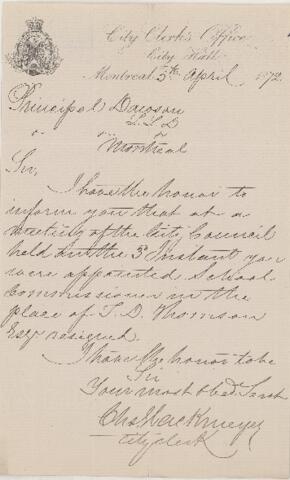 City Clerk's Office
City Hall
Montreal 5th April 1872
Principal Dawson
L.L.D
Montreal
Sir,
I have the honor to
inform you that at a
meeting of the City Council
held on the 3d Instant you
were appointed School
Commissioner in the
place of T. D. Thomson
Esqr resigned.
I have the honor to be
Sir
Your most obed. Servt
Chs Glackmeyer
City Clerk